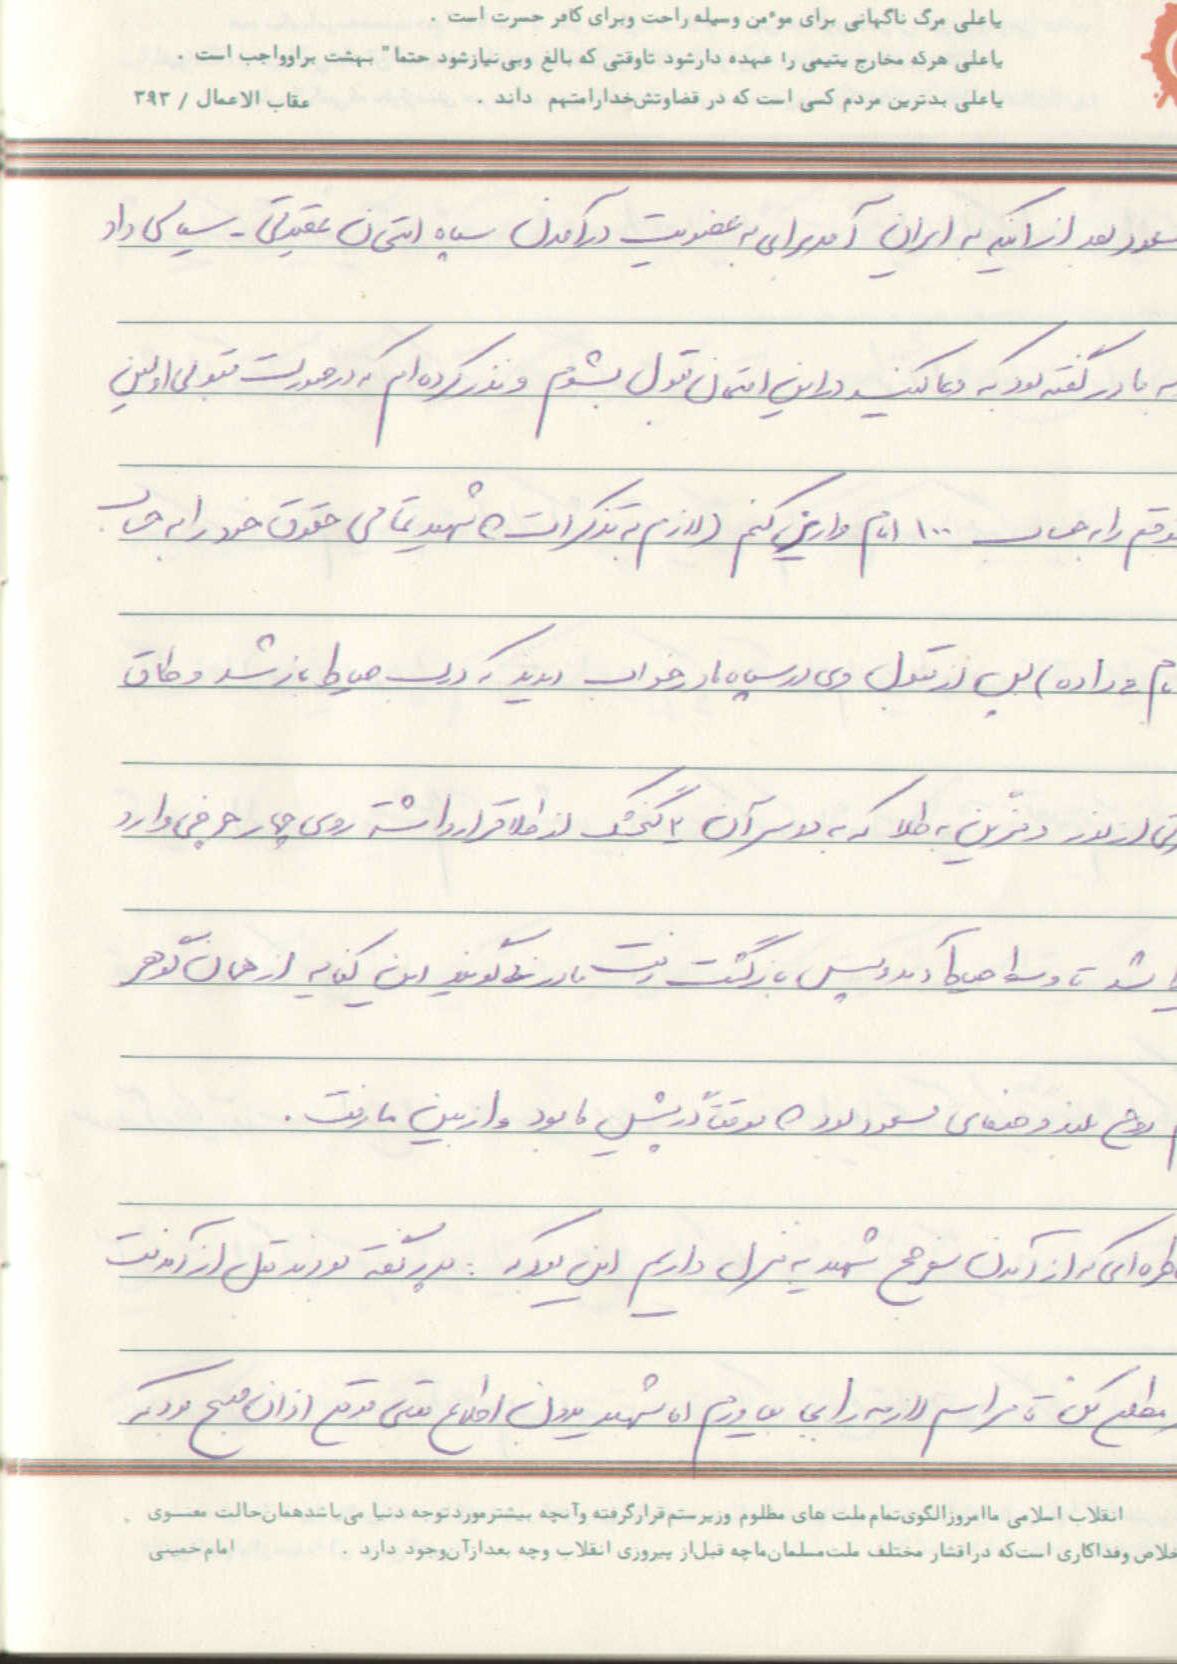 یاعلی مرگ ناگهانی برای موٴمن وسیله راحت وبرای کافر حسرت است .
یاعلی هرکه مخارج یتیمی را عهده دارشود تاوقتی که بالغ وبی‌نیازشود حتما" بهشت براوواجب است .
یاعلی بدترین مردم کسی است که در قضاوتش‌خدارامتهم داند . عقاب الاعمال / ۳۹۳
بعد از اینکه به ایران آمد برای به عضویت درآمدن سپاه امتحان عقیدتی - سیاسی داد
به مادر گفته بود که دعا کنید در این امتحان قبول بشوم و نذر کرده‌ام که در صورت قبولی اولین
را به حساب ۱۰۰ امام واریز کنم (لازم به تذکر است که شهید تمامی حقوق خود را به حساب
داده) پس از قبول وی در سپاه مادر خواب دیدند که درب حیاط باز شد و طاق
از نور و مزین به طلا که به دو سر آن ۲ گنجشک از طلا قرار داشته روی چهار چرخی وارد
شد تا وسط حیاط آمد و سپس بازگشت رفت مادر می‌گویند این کنایه از همان گوهر
روح بلند و مسعود بود که موقتاً در پیش ما بود و از بین ما رفت .
که از آمدن شهید به منزل داریم این بود که : پدر گفته بودند قبل از آمدنت
کن تا مراسم لازمه را بجا بیاورم اما شهید بدون اطلاع موقع اذان صبح بود که
انقلاب اسلامی ماامروزالگوی‌تمام‌ملت های مظلوم وزیرستم‌قرارگرفته وآنچه بیشترموردتوجه دنیا می‌باشدهمان‌حالت معنـــوی
وفداکاری است‌که دراقشار مختلف ملت‌مسلمان‌ماچه قبل‌از پیروزی انقلاب وچه بعدازآن‌وجود دارد . امام‌خمینی